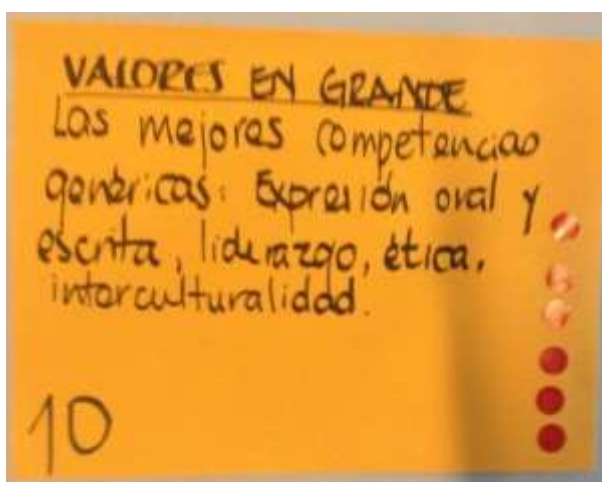 VALORES EN GRANDE
Las mejores competencias
genéricas: Expresión oral y
escrita, liderazgo, ética,
interculturalidad.
10